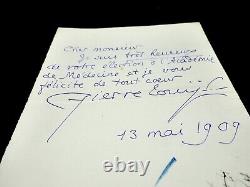 Cher monsieur
Je suis très heureux
de votre élection à l'Académie
de Médecine et je vous
félicite de tout coeur
Pierre Louÿs
13 mai 1909